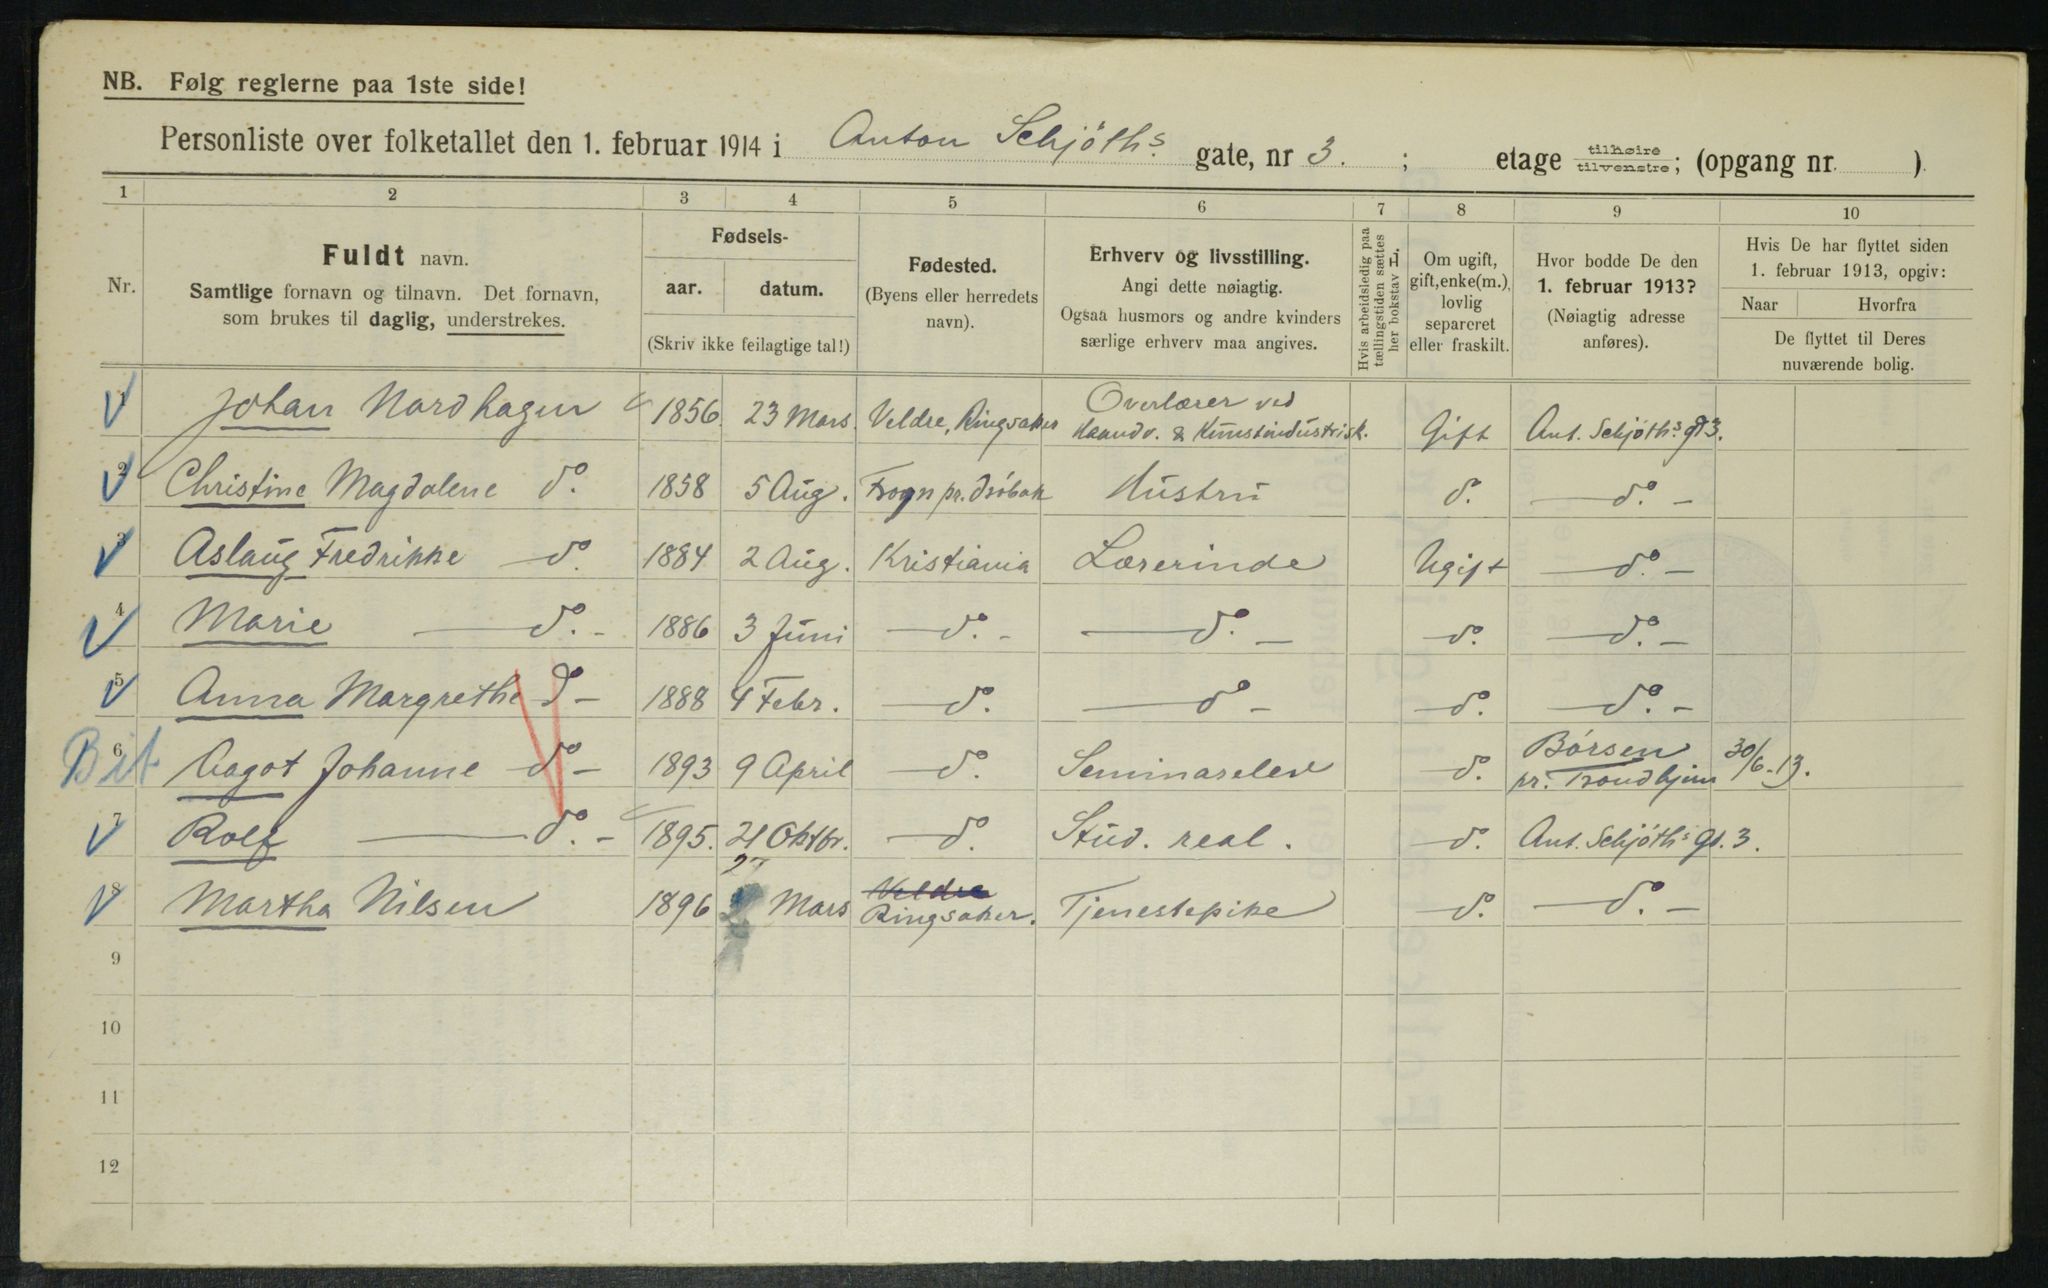 NB. Følg reglerne paa 1ste side!
Personliste over folketallet den 1. februar 1914 i Anton Schjøths gate, nr 3. ; etage tilhøire tilvenstre; (opgang nr. )
1 2 3 4 5 6 7 8 9 10
Nr.
Fuldt navn.
Samtlige fornavn og tilnavn. Det fornavn,
som brukes til daglig, understrekes.
Fødsels-
aar. datum.
(Skriv ikke feilagtige tal!)
Fødested.
(Byens eller herredets
navn).
Erhverv og livsstilling.
Angi dette nøiagtig.
Ogsaa husmors og andre kvinders
særlige erhverv maa angives.
Hvis arbeidsledig paa
tællingstiden sættes
her bokstav L.
Om ugift,
gift, enke(m.),
lovlig
separeret
eller fraskilt.
Hvor bodde De den
1. februar 1913?
(Nøiagtig adresse
anføres).
Hvis De har flyttet siden
1. februar 1913, opgiv:
Naar Hvorfra
De flyttet til Deres
nuværende bolig.
1 Johan Nordhagen 1856. 23 Mars. Veldre, Ringsaker Overlærer ved Haandv. & Kunstindustrisk. Gift Ant. Schjøths gt 3.
2 Christine Magdalene do. 1858 5 Aug. Frogn pr. Drøbak Hustru do. — do. —
3 Aslaug Fredrikke — do. 1884 2 Aug. Kristiania Lærerinde Ugift — do. —
4 Marie — do. - 1886 3 Juni — do. - — do. — do. — do. —
5 Anna Margrethe do — 1888 4 Febr. — do. — do — do. — do. —
Bit 6 Aagot Johanne — do — 1893 9 April — do. Seminarelev do. Børsen pr. Trondhjem 30/6 - 13.
7 Rolf — do. - 1895. 21 Oktbr. — do. Stud. real. do. Ant. Schjøths gt. 3.
8 Martha Nilsen 1896 27 Mars Veldre Ringsaker. Tjenestepike do. — do. —
9
10
11
12